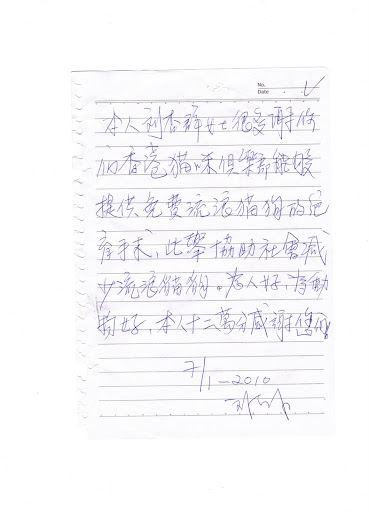 No.
Date
本人刘杏群女士很多謝你
们香港貓咪俱樂部能够
提供免費流浪貓狗的绝
育手术,此舉協助社會减
少流浪貓狗。为人好,为動
物好,本人十二萬分感謝您们!
7/1-2010